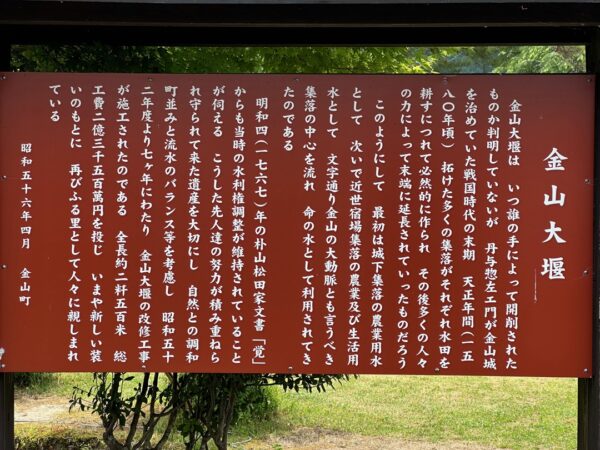 金山大堰
金山大堰は　いつ誰の手によって開削された
ものか判明していないが　丹与惣左エ門が金山城
を治めていた戦国時代の末期　天正年間（一五
八〇年頃）　拓けた多くの集落がそれぞれ水田を
耕すにつれて必然的に作られ　その後多くの人々
の力によって末端に延長されていったものだろう
このようにして　最初は城下集落の農業用水
として　次いで近世宿場集落の農業及び生活用
水として　文字通り金山の大動脈とも言うべき
集落の中心を流れ　命の水として利用されてき
たのである
明和四（一七六七）年の朴山松田家文書「覚」
からも当時の水利権調整が維持されていること
が伺える　こうした先人達の努力が積み重ねら
れ守られて来た遺産を大切にし　自然との調和
町並みと流水のバランス等を考慮し　昭和五十
二年度より七ヶ年にわたり　金山大堰の改修工事
が施工されたのである　全長約二粁五百米　総
工費二億三千五百萬円を投じ　いまや新しい装
いのもとに　再びふる里として人々に親しまれ
ている
昭和五十六年四月　金山町